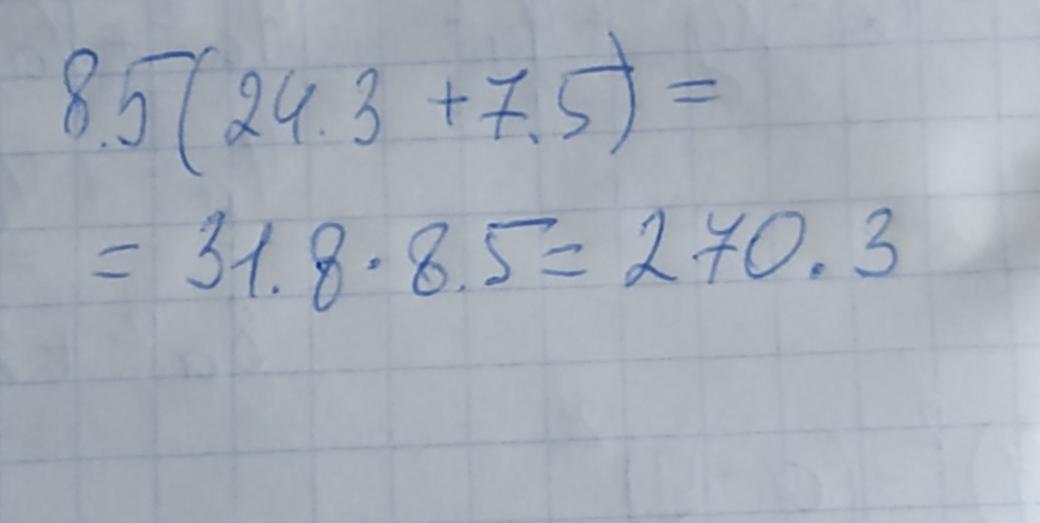 8.5(24.3 +7.5) =
= 31.8·8.5 = 270.3